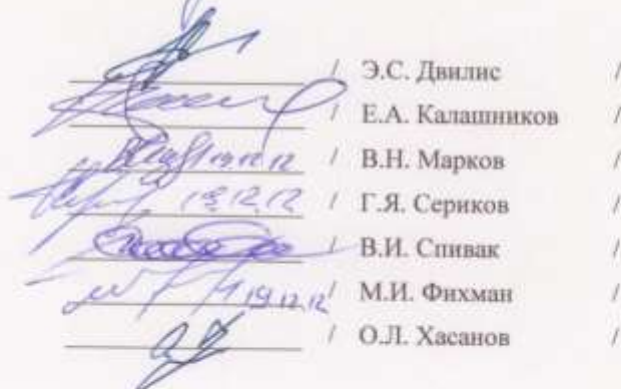 / Э.С. Двилис /
/ Е.А. Калашников /
19.12.12 / В.Н. Марков /
19.12.12 / Г.Я. Сериков /
/ В.И. Спивак /
19.12.12 / М.И. Фихман /
/ О.Л. Хасанов /